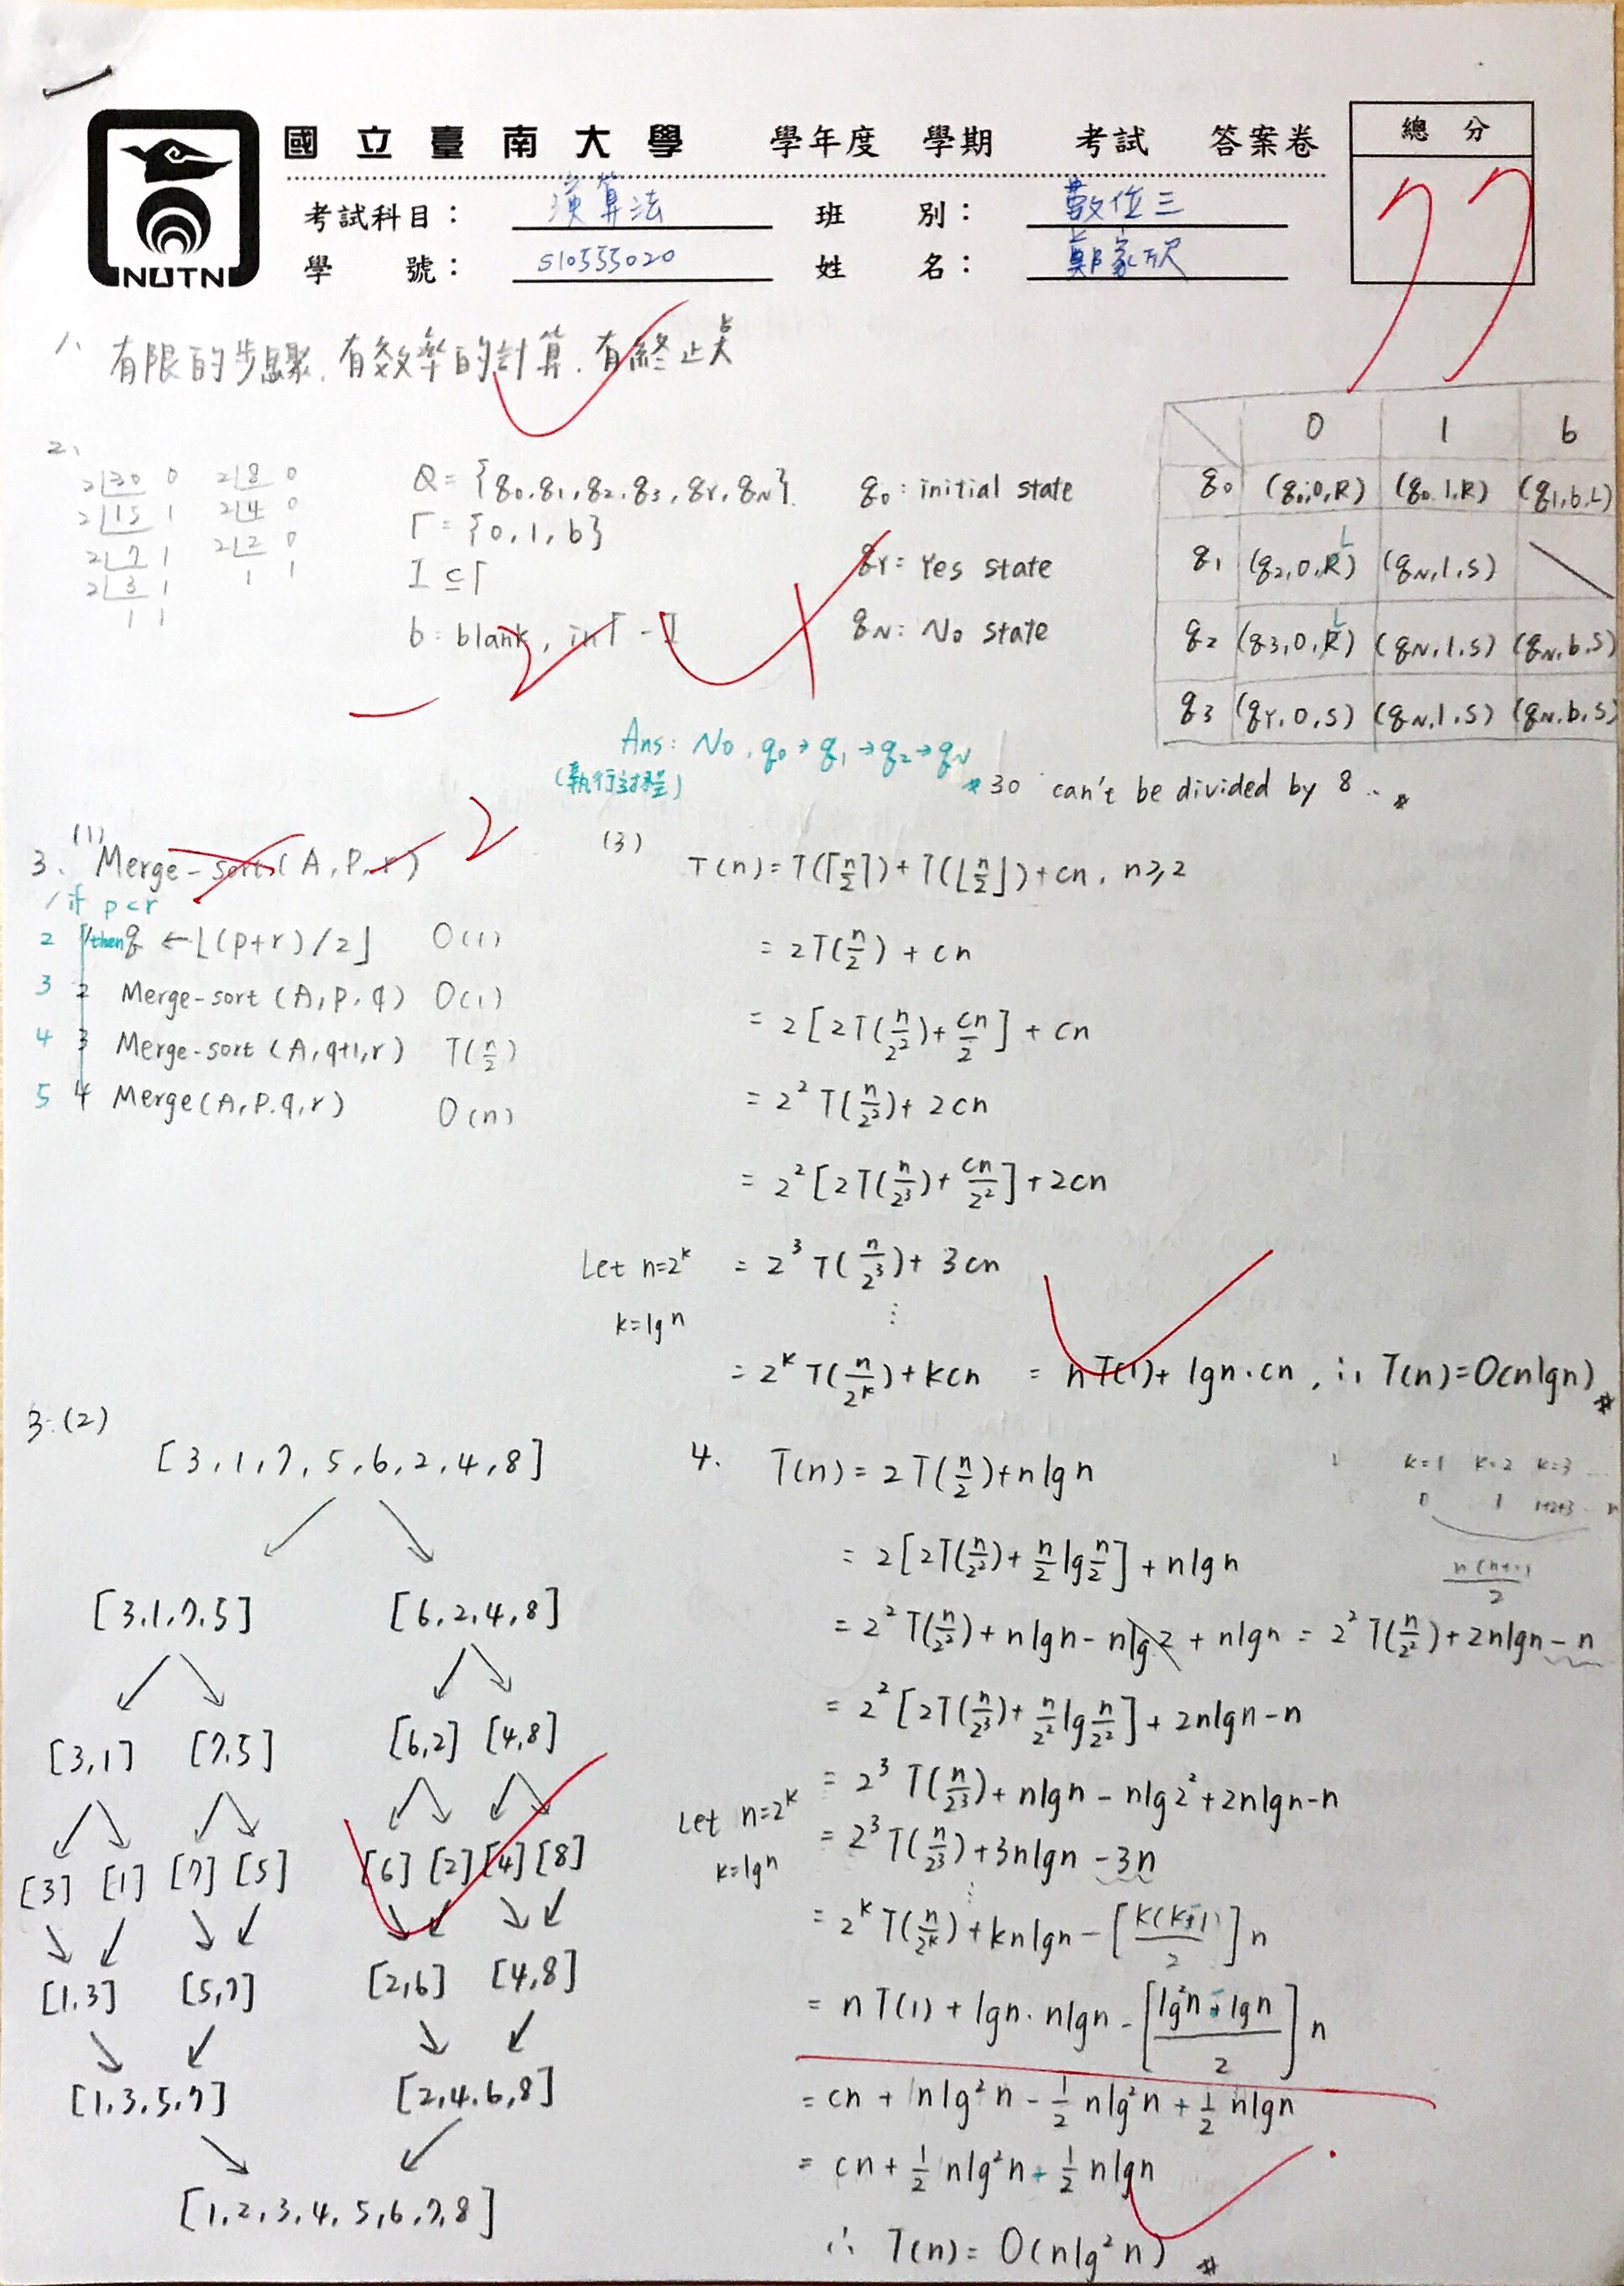 國立臺南大學 學年度 學期 考試 答案卷
總分
77
考試科目： 演算法 班別： 數位三
學號： S10555020 姓名： 鄭家欣
NUTN
1、有限的步驟、有效率的計算、有終止點
2、
2|30 0 2|8 0
2|15 1 2|4 0
2|7 1 2|2 0
2|3 1 1 1
1 1
Q = {q0, q1, q2, q3, qY, qN}
Γ = {0, 1, b}
I ⊆ Γ
b : blank, in Γ - I
q0 : initial state
qY : Yes state
qN : No state
0 1 b
q0 (q0, 0, R) (q0, 1, R) (q1, b, L)
q1 (q2, 0, L) (qN, 1, S)
q2 (q3, 0, L) (qN, 1, S) (qN, b, S)
q3 (qY, 0, S) (qN, 1, S) (qN, b, S)
-2
Ans : No, q0 → q1 → q2 → qN
(執行過程)
30 can't be divided by 8
3. (1) Merge-sort (A, P, r)
1 if p<r
2 then q ← ⌊(p+r)/2⌋ O(1)
3 2 Merge-sort (A, p, q) O(1)
4 3 Merge-sort (A, q+1, r) T(n/2)
5 4 Merge (A, P, q, r) O(n)
(3)
T(n) = T(⌈n/2⌉) + T(⌊n/2⌋) + cn, n≥2
= 2T(n/2) + cn
= 2[2T(n/2²) + cn/2] + cn
= 2² T(n/2²) + 2cn
= 2² [2T(n/2³) + cn/2²] + 2cn
Let n=2^k = 2³ T(n/2³) + 3cn
k=lg n ⋮
= 2^k T(n/2^k) + kcn = nT(1) + lgn·cn, ∴ T(n)=O(nlgn)
3. (2)
[3, 1, 7, 5, 6, 2, 4, 8]
[3, 1, 7, 5] [6, 2, 4, 8]
[3, 1] [7, 5] [6, 2] [4, 8]
[3] [1] [7] [5] [6] [2] [4] [8]
[1, 3] [5, 7] [2, 6] [4, 8]
[1, 3, 5, 7] [2, 4, 6, 8]
[1, 2, 3, 4, 5, 6, 7, 8]
4. T(n) = 2T(n/2) + nlgn
= 2[2T(n/2²) + n/2 lg n/2] + nlgn
= 2² T(n/2²) + nlgn - nlg2 + nlgn = 2² T(n/2²) + 2nlgn - n
= 2² [2T(n/2³) + n/2² lg n/2²] + 2nlgn - n
= 2³ T(n/2³) + nlgn - nlg2² + 2nlgn - n
Let n=2^k = 2³ T(n/2³) + 3nlgn - 3n
k=lg n ⋮
= 2^k T(n/2^k) + knlgn - [k(k-1)/2] n
= nT(1) + lgn·nlgn - [lg²n - lgn / 2] n
= cn + nlg²n - 1/2 nlg²n + 1/2 nlgn
= cn + 1/2 nlg²n + 1/2 nlgn
∴ T(n) = O(nlg²n)
k=1 k=2 k=3
0 1 1+2+3